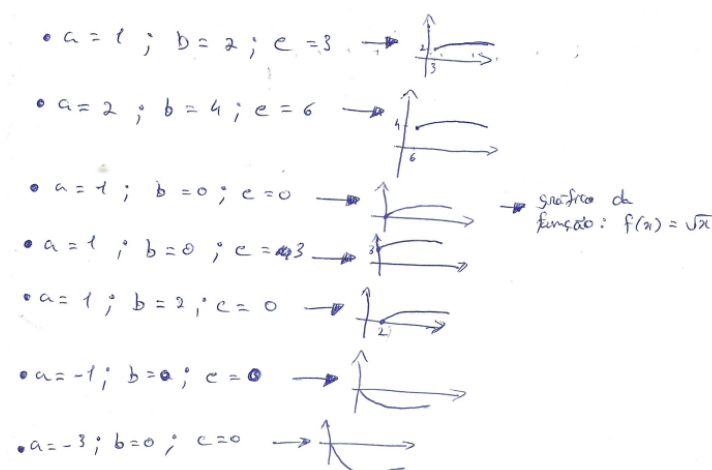 • a = 1 ; b = 2 ; c = 3 → 2 3
• a = 2 ; b = 4 ; c = 6 → 4 6
• a = 1 ; b = 0 ; c = 0 → → gráfico da
função: f(x) = √x
• a = 1 ; b = 0 ; c = 3 → 3
• a = 1 ; b = 2 ; c = 0 → 2
• a = -1 ; b = 0 ; c = 0 →
• a = -3 ; b = 0 ; c = 0 →